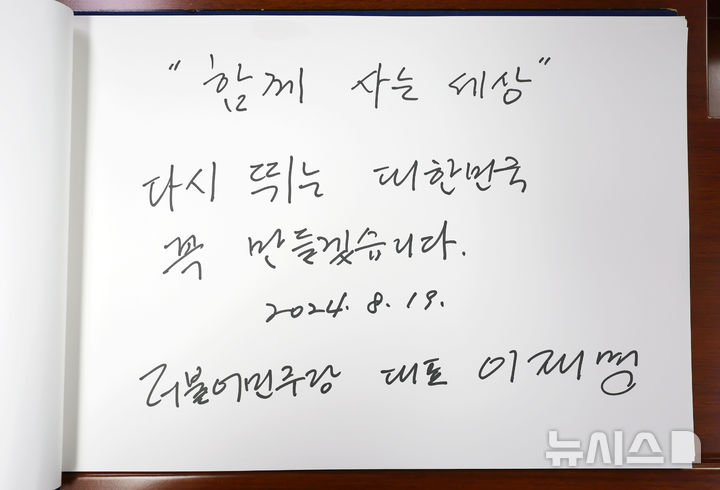 "함께 사는 세상"
다시 뛰는 대한민국
꼭 만들겠습니다.
2024. 8. 19.
더불어민주당 대표 이재명
뉴시스